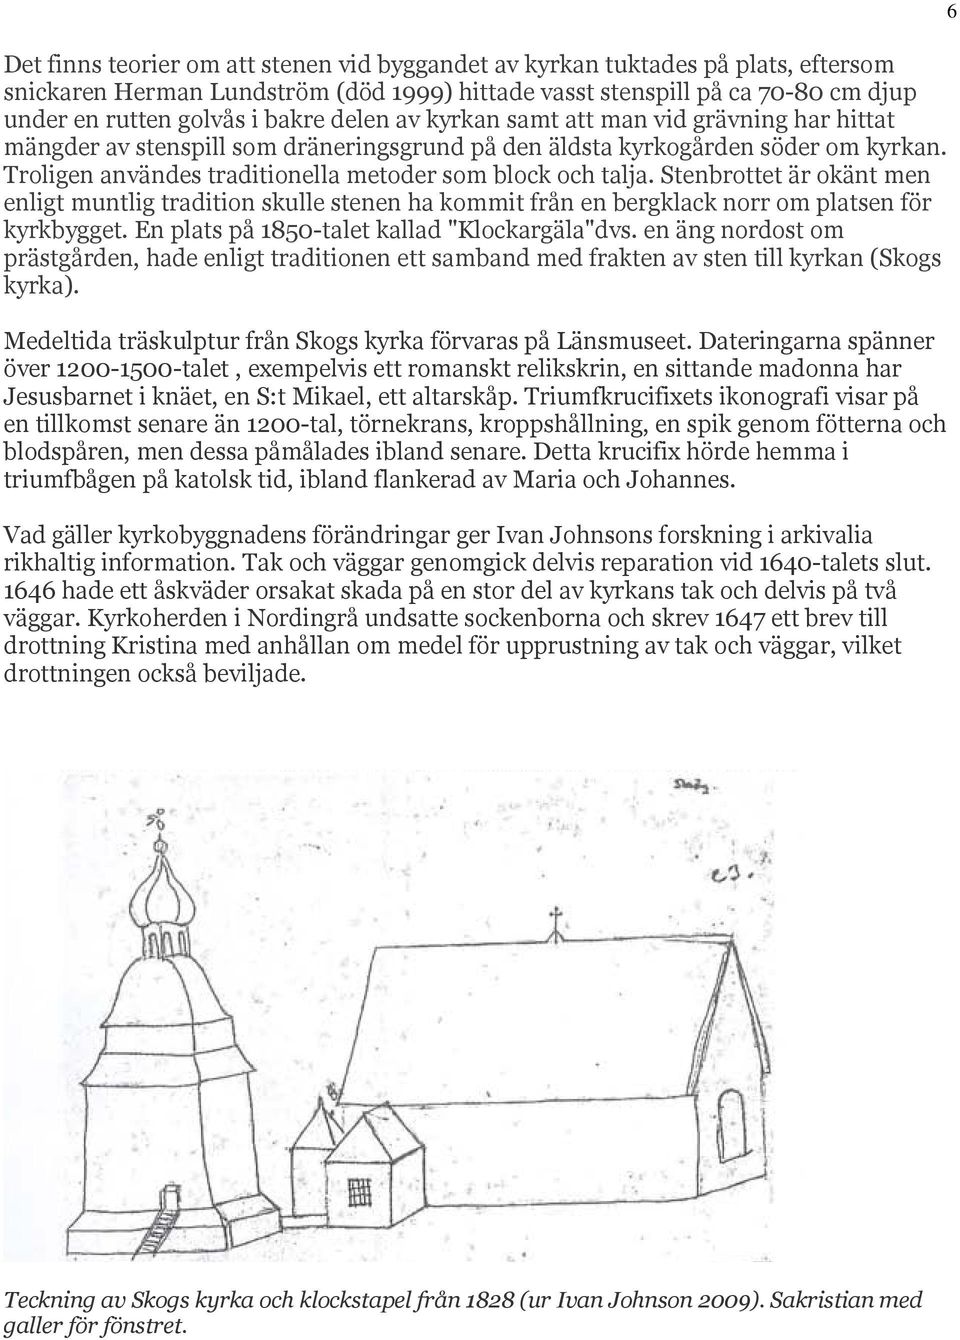 6
Det finns teorier om att stenen vid byggandet av kyrkan tuktades på plats, eftersom
snickaren Herman Lundström (död 1999) hittade vasst stenspill på ca 70-80 cm djup
under en rutten golvås i bakre delen av kyrkan samt att man vid grävning har hittat
mängder av stenspill som dräneringsgrund på den äldsta kyrkogården söder om kyrkan.
Troligen användes traditionella metoder som block och talja. Stenbrottet är okänt men
enligt muntlig tradition skulle stenen ha kommit från en bergklack norr om platsen för
kyrkbygget. En plats på 1850-talet kallad "Klockargäla"dvs. en äng nordost om
prästgården, hade enligt traditionen ett samband med frakten av sten till kyrkan (Skogs
kyrka).
Medeltida träskulptur från Skogs kyrka förvaras på Länsmuseet. Dateringarna spänner
över 1200-1500-talet , exempelvis ett romanskt relikskrin, en sittande madonna har
Jesusbarnet i knäet, en S:t Mikael, ett altarskåp. Triumfkrucifixets ikonografi visar på
en tillkomst senare än 1200-tal, törnekrans, kroppshållning, en spik genom fötterna och
blodspåren, men dessa påmålades ibland senare. Detta krucifix hörde hemma i
triumfbågen på katolsk tid, ibland flankerad av Maria och Johannes.
Vad gäller kyrkobyggnadens förändringar ger Ivan Johnsons forskning i arkivalia
rikhaltig information. Tak och väggar genomgick delvis reparation vid 1640-talets slut.
1646 hade ett åskväder orsakat skada på en stor del av kyrkans tak och delvis på två
väggar. Kyrkoherden i Nordingrå undsatte sockenborna och skrev 1647 ett brev till
drottning Kristina med anhållan om medel för upprustning av tak och väggar, vilket
drottningen också beviljade.
Teckning av Skogs kyrka och klockstapel från 1828 (ur Ivan Johnson 2009). Sakristian med
galler för fönstret.